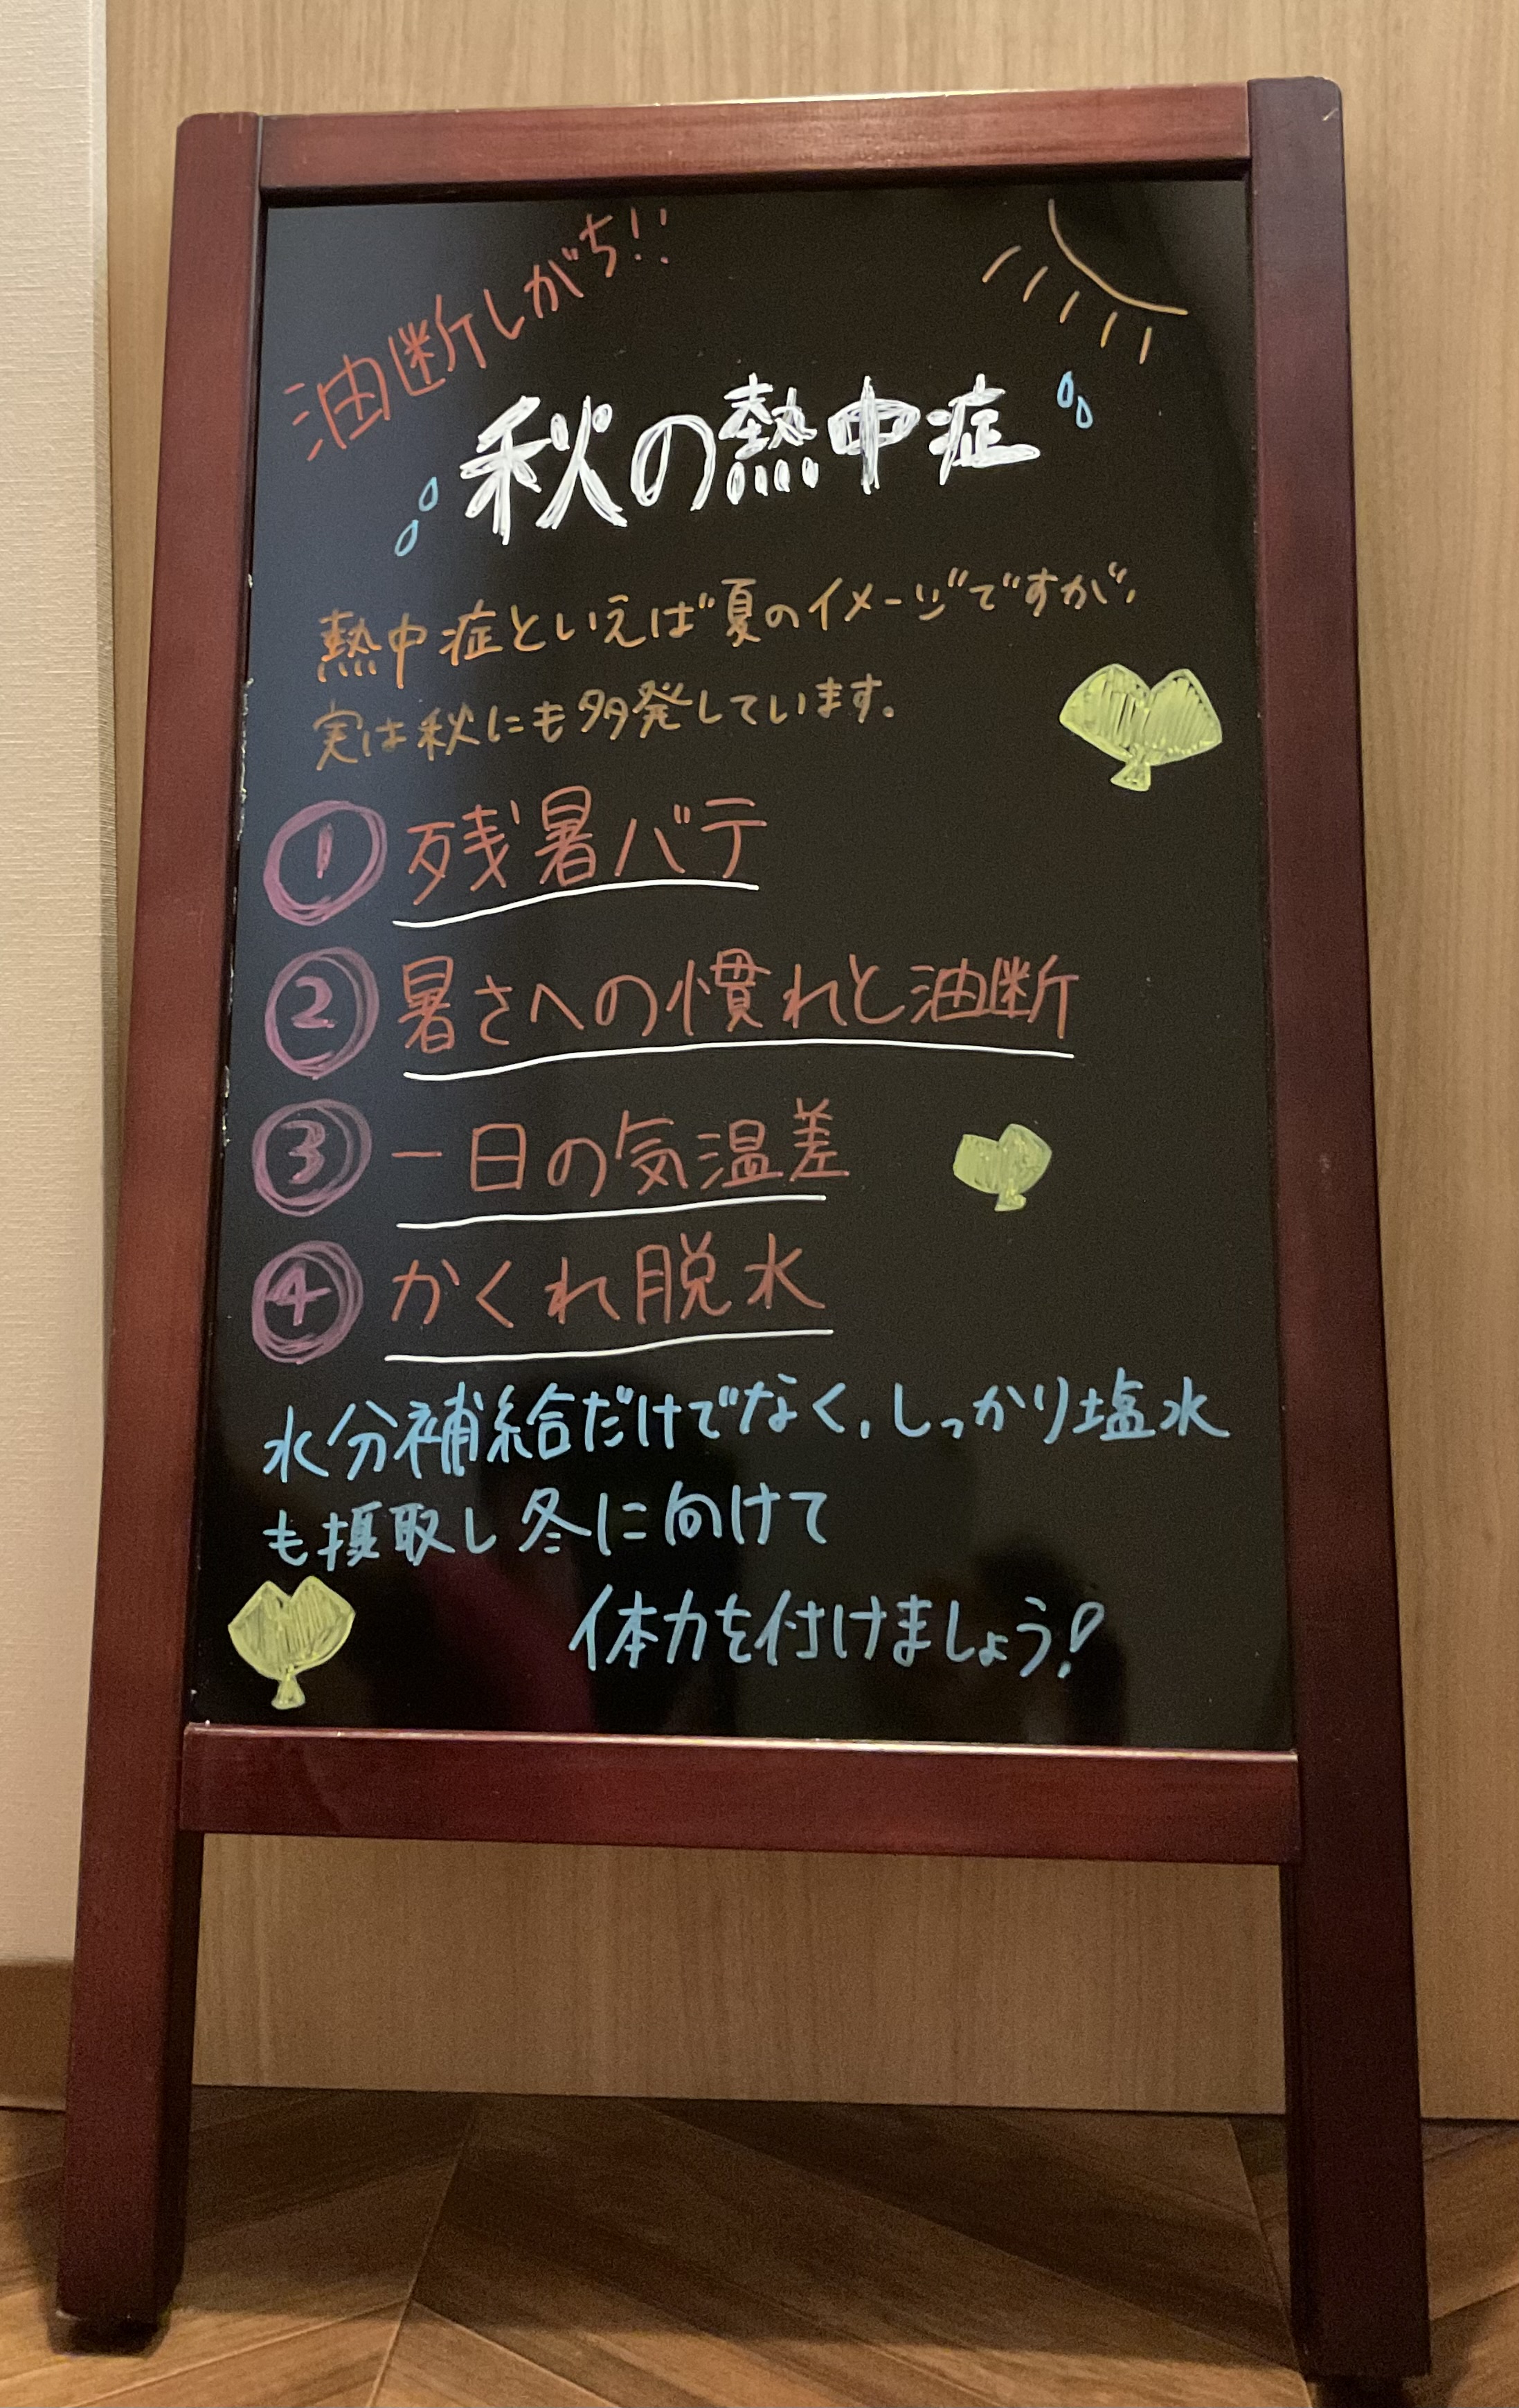 油断しがち!!
秋の熱中症
熱中症といえば夏のイメージですが、
実は秋にも多発しています。
① 残暑バテ
② 暑さへの慣れと油断
③ 一日の気温差
④ かくれ脱水
水分補給だけでなく、しっかり塩水
も摂取し冬に向けて
体力を付けましょう!